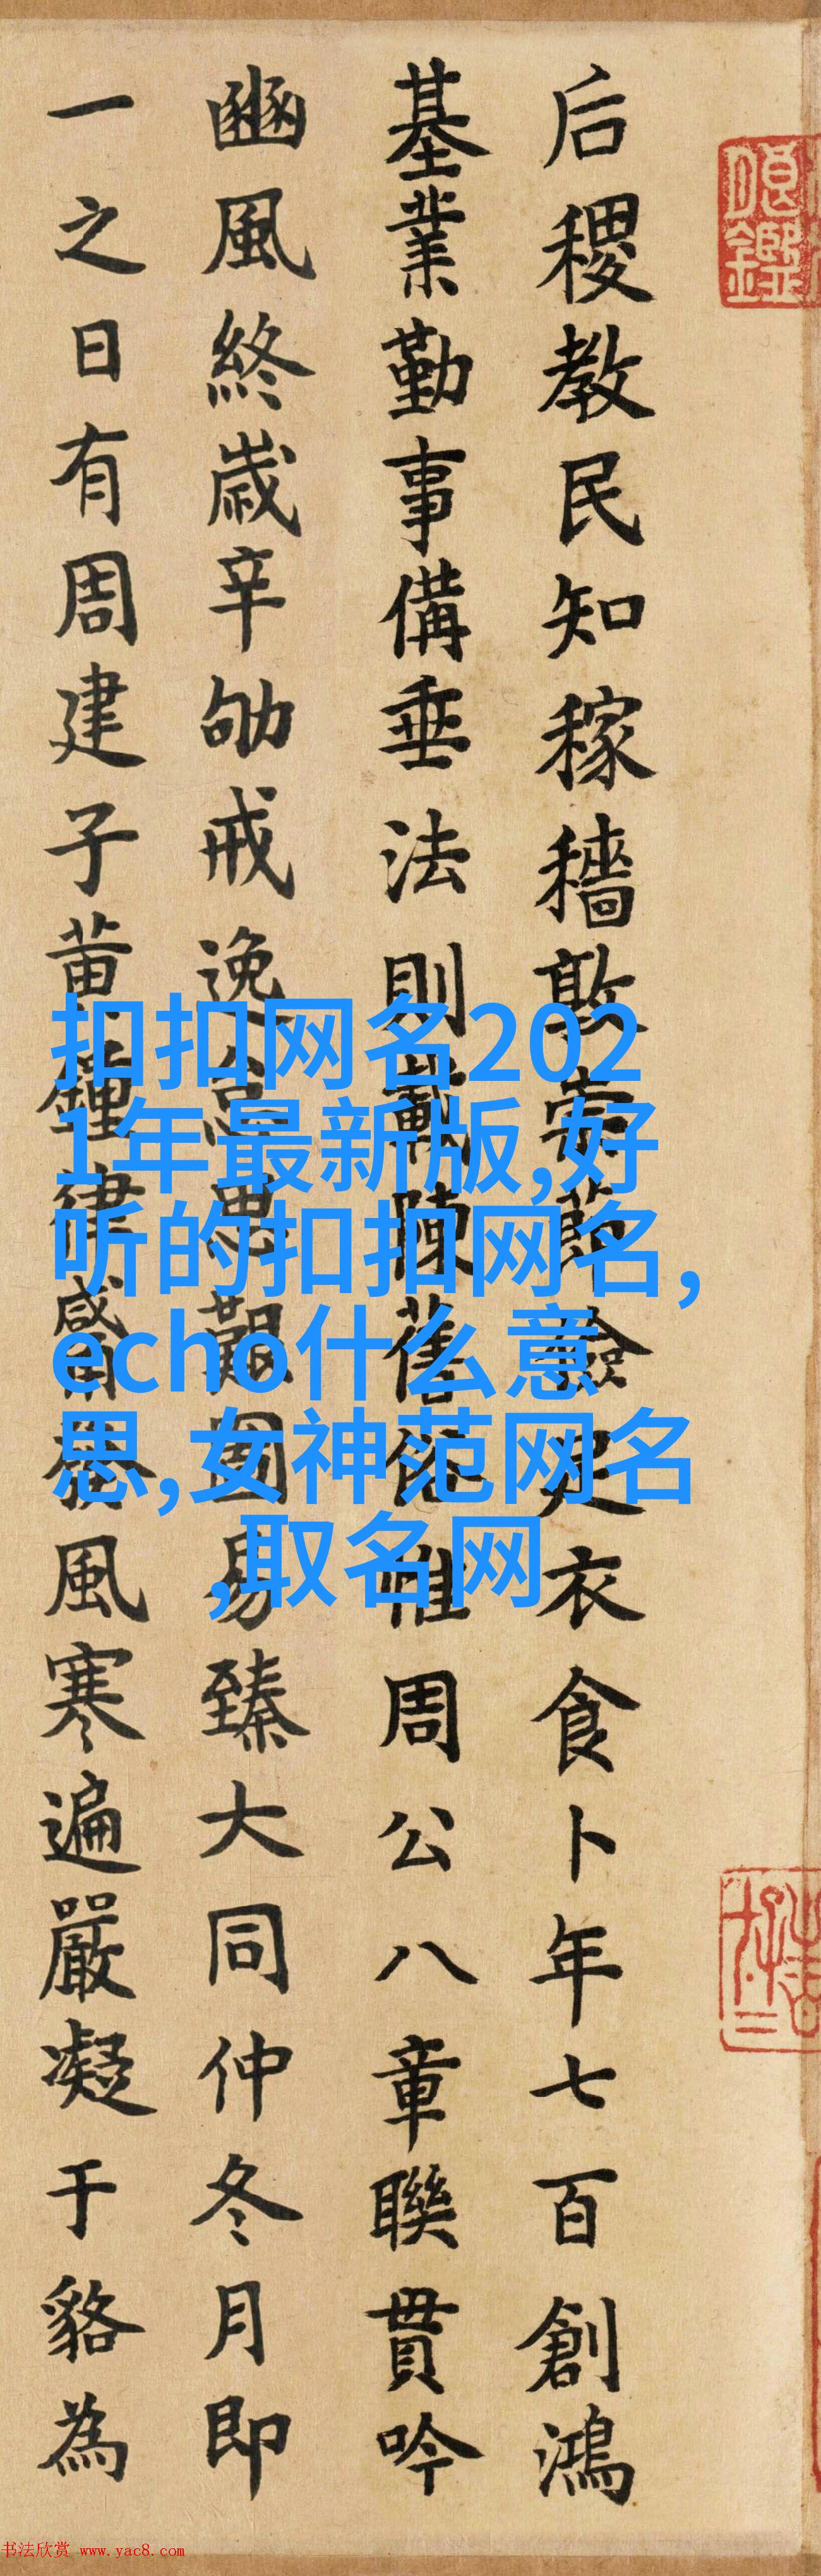 后稷教民知稼穡敦崇節儉足衣食卜年七百創鴻
基業勤事備垂法則載陳舊俗惟周公八章聯貫吟
豳風終歲辛劬戒逸思艱圖易臻大同仲冬月即
一之日有周建子黃鐘律觱發風寒遍嚴凝于貉為
扣扣网名202
1年最新版,好
听的扣扣网名,
echo什么意
思,女神范网名
,取名网
书法欣赏 www.yac8.com